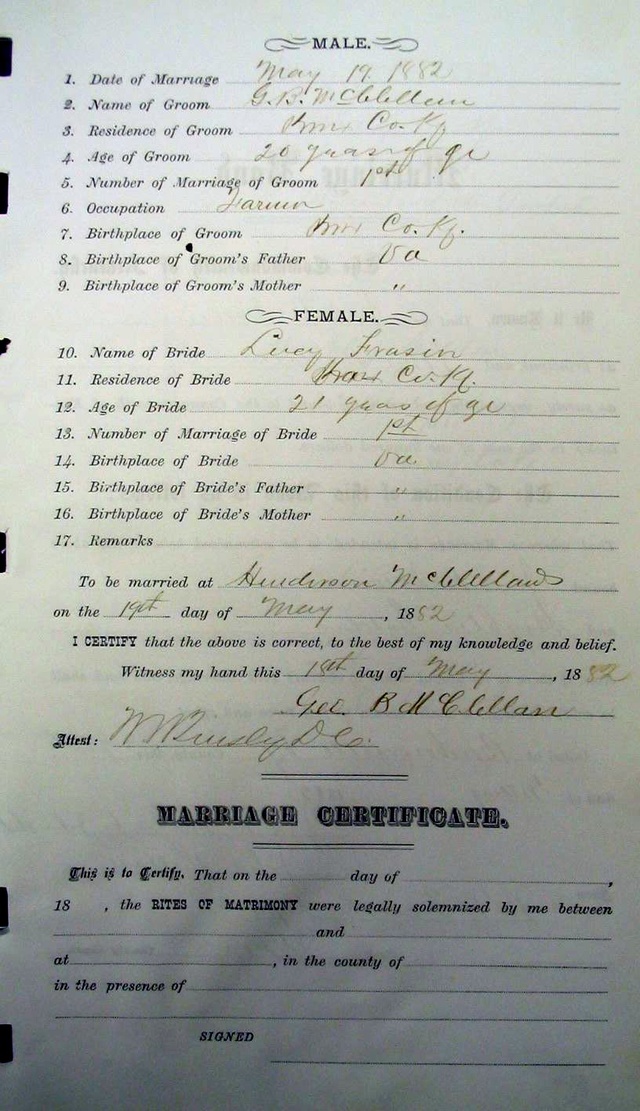 MALE.
1. Date of Marriage May 19 1882
2. Name of Groom G. B. McClellan
3. Residence of Groom Knox Co. Ky
4. Age of Groom 20 years of ge
5. Number of Marriage of Groom 1st
6. Occupation Farmer
7. Birthplace of Groom Knox Co. Ky.
8. Birthplace of Groom's Father Va
9. Birthplace of Groom's Mother "
FEMALE.
10. Name of Bride Lucy
11. Residence of Bride Knox Co. Ky.
12. Age of Bride 21 years of ge
13. Number of Marriage of Bride 1st
14. Birthplace of Bride Va.
15. Birthplace of Bride's Father "
16. Birthplace of Bride's Mother "
17. Remarks
To be married at Henderson McClellands
on the 19th day of May, 1882
I CERTIFY that the above is correct, to the best of my knowledge and belief.
Witness my hand this 18th day of May, 1882
Geo. B McClellan
Attest: D C.
MARRIAGE CERTIFICATE.
This is to Certify, That on the day of ,
18 , the RITES OF MATRIMONY were legally solemnized by me between
and
at , in the county of
in the presence of
SIGNED